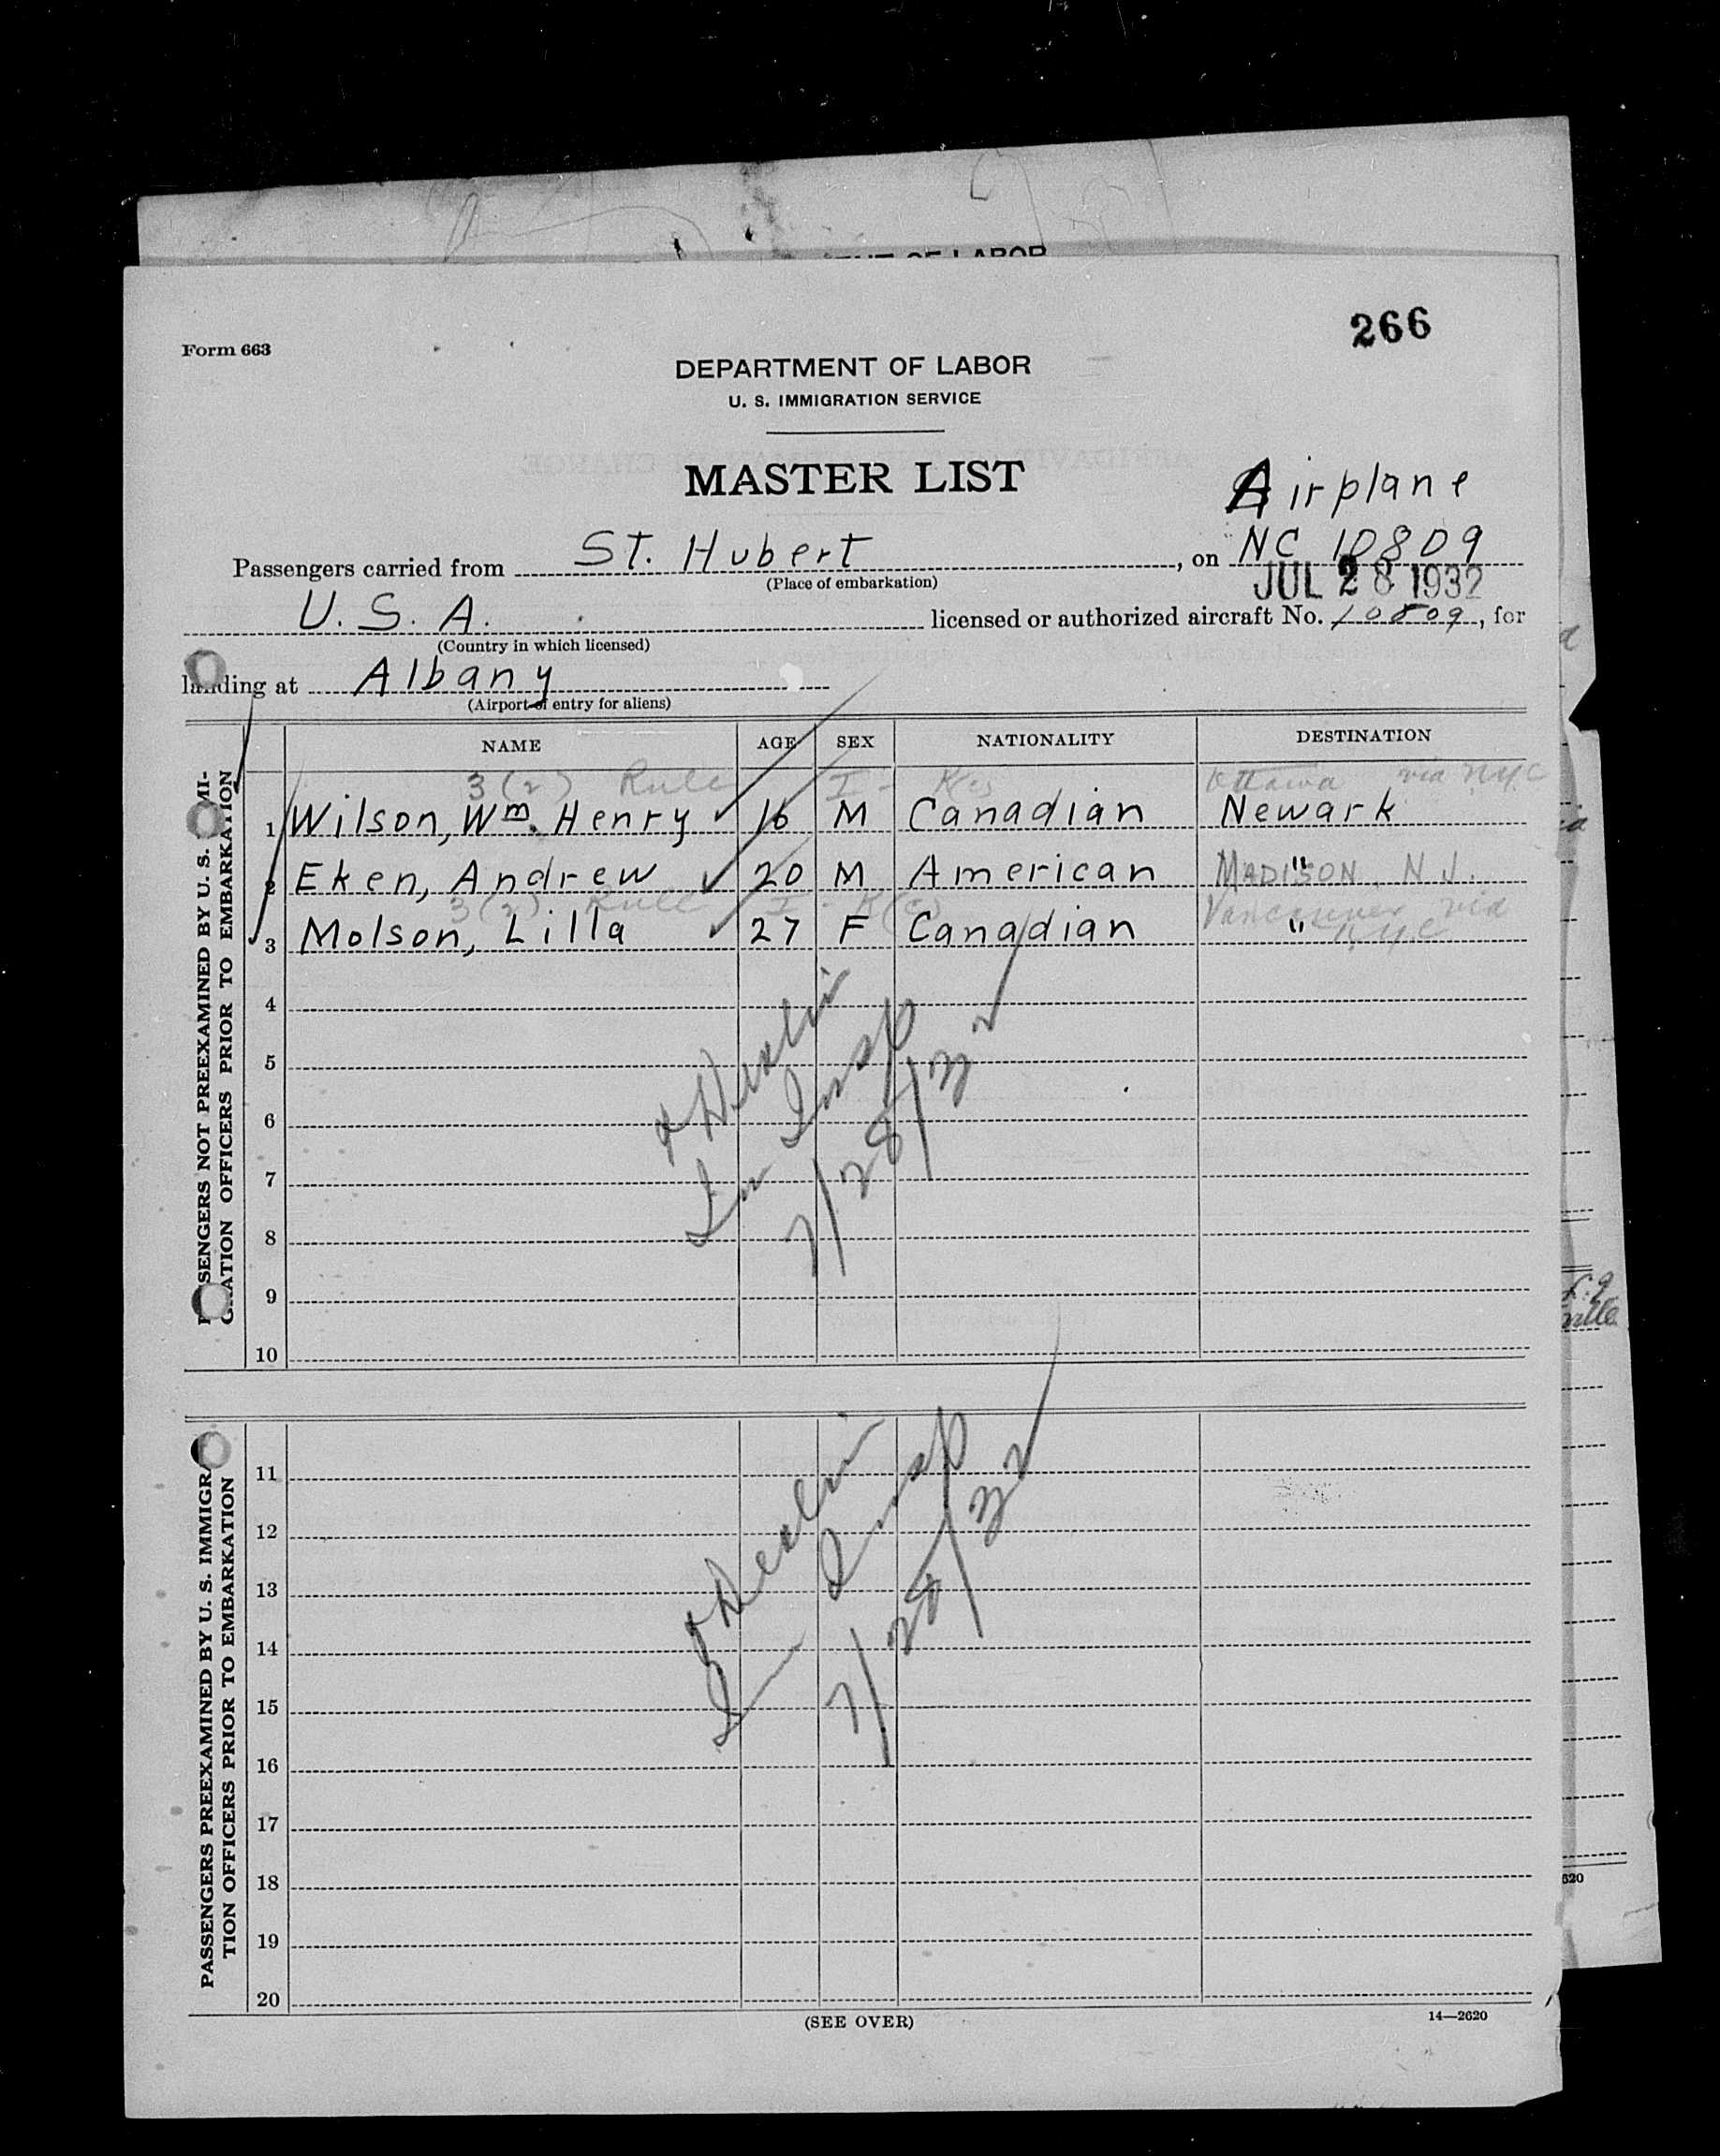 266
Form 663
DEPARTMENT OF LABOR
U. S. IMMIGRATION SERVICE
MASTER LIST
Airplane
Passengers carried from St. Hubert, on NC 10809
(Place of embarkation)
JUL 28 1932
U. S. A. licensed or authorized aircraft No. 10809, for
(Country in which licensed)
landing at Albany
(Airport of entry for aliens)
NAME AGE SEX NATIONALITY DESTINATION
3(2) Rule I - Ottawa via NYC
1 Wilson, Wm. Henry 16 M Canadian Newark
2 Eken, Andrew 20 M American " MADISON N J.
3(2) Rule I - K(c) Vancouver via NYC
3 Molson, Lilla 27 F Canadian "
4
5
6
7
8
9
10
PASSENGERS NOT PREEXAMINED BY U. S. IMMI-
GRATION OFFICERS PRIOR TO EMBARKATION
Im Insp
7/28/32
11
12
13
14
15
16
17
18
19
20
PASSENGERS PREEXAMINED BY U. S. IMMIGRA-
TION OFFICERS PRIOR TO EMBARKATION
Im Insp
7/28/32
(SEE OVER)
14—2620